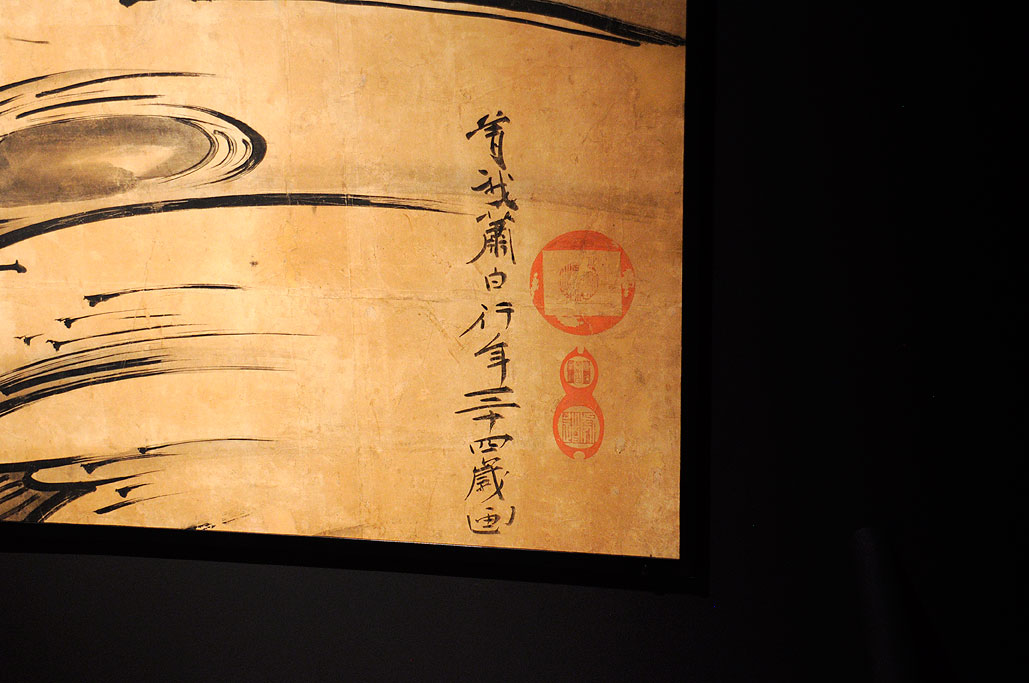 曽我蕭白行年三十四歳画